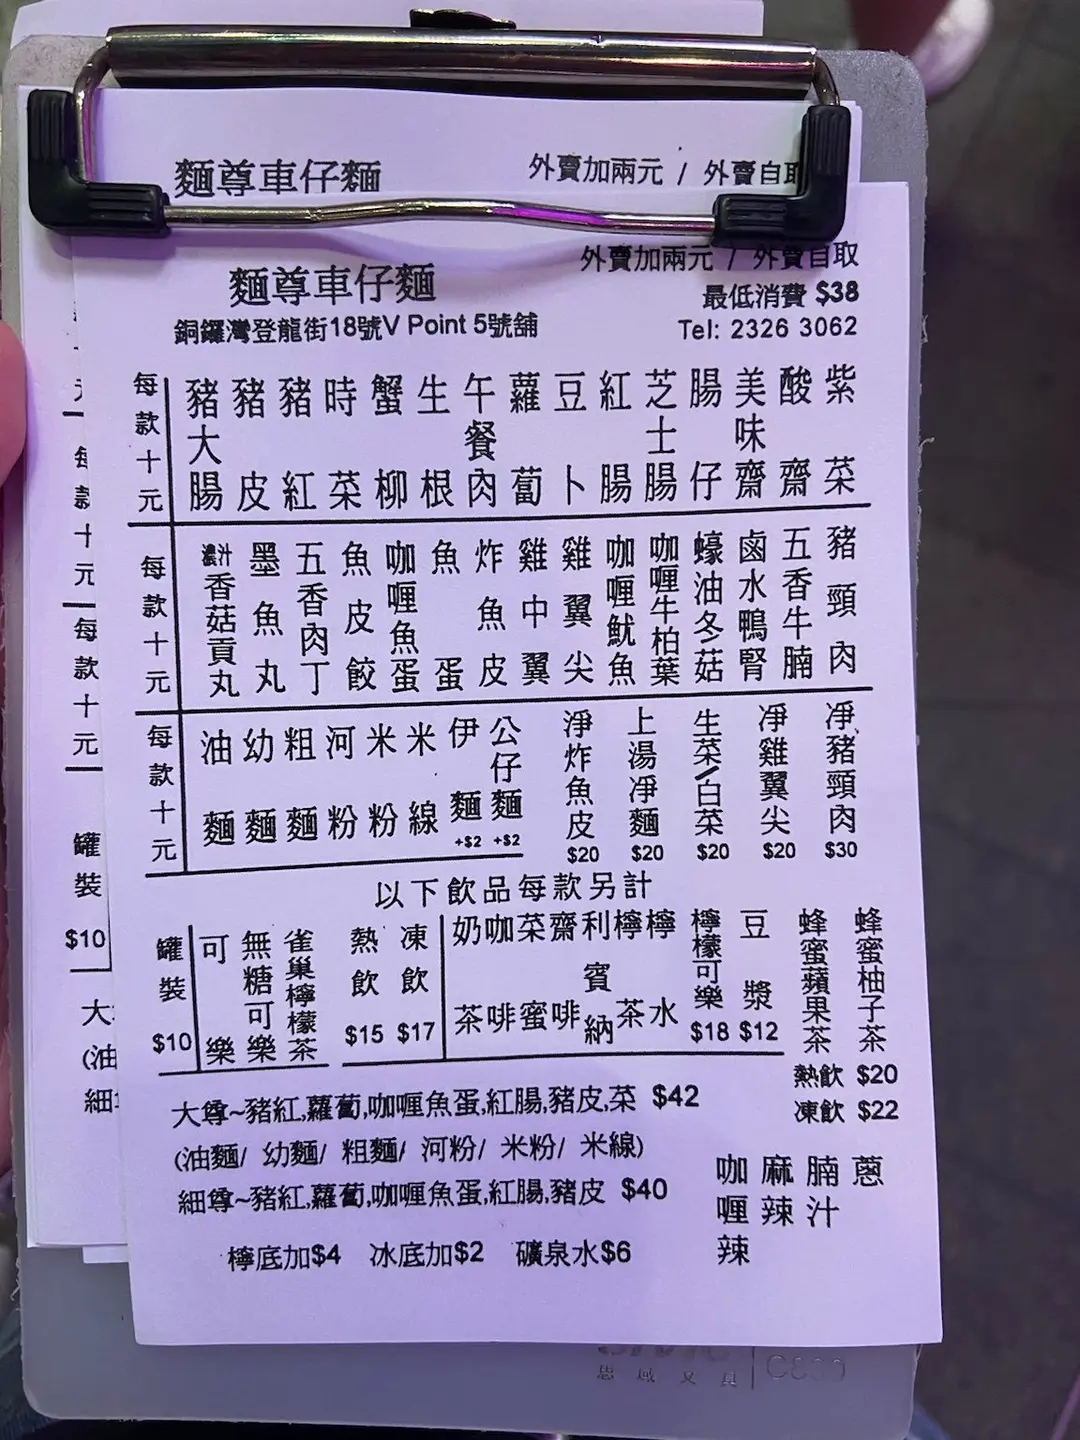 麵尊車仔麵
外賣加兩元 / 外賣自取
麵尊車仔麵
外賣加兩元 / 外賣自取
最低消費 $38
銅鑼灣登龍街18號V Point 5號舖
Tel: 2326 3062
每款十元
豬大腸
豬皮
豬紅
時菜
蟹柳
生根
午餐肉
蘿蔔
豆卜
紅腸
芝士腸
腸仔
美味齋
酸齋
紫菜
每款十元
濃汁香菇貢丸
墨魚丸
五香肉丁
魚皮餃
咖喱魚蛋
魚蛋
炸魚皮
雞中翼
雞翼尖
咖喱魷魚
咖喱牛柏葉
蠔油冬菇
鹵水鴨腎
五香牛腩
豬頸肉
每款十元
油麵
幼麵
粗麵
河粉
米粉
米線
伊麵 +$2
公仔麵 +$2
淨炸魚皮 $20
上湯淨麵 $20
生菜/白菜 $20
凈雞翼尖 $20
凈豬頸肉 $30
以下飲品每款另計
罐裝 $10
可樂
無糖可樂
雀巢檸檬茶
熱飲 $15
凍飲 $17
奶茶
咖啡
菜蜜
齋啡
利賓納
檸茶
檸水
檸檬可樂 $18
豆漿 $12
蜂蜜蘋果茶
蜂蜜柚子茶
熱飲 $20
凍飲 $22
大尊~豬紅,蘿蔔,咖喱魚蛋,紅腸,豬皮,菜 $42
(油麵/ 幼麵/ 粗麵/ 河粉/ 米粉/ 米線)
細尊~豬紅,蘿蔔,咖喱魚蛋,紅腸,豬皮 $40
咖喱辣
麻辣
腩汁
蔥
檸底加$4 冰底加$2 礦泉水$6
元
每款十元
每款十元
罐裝
$10
大
(油
細
思域文具